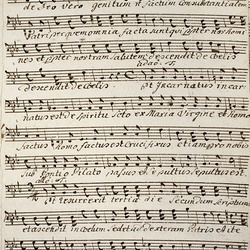 de Deo vero genitum n factum Consubstantialem
Patri per quem omnia facta sunt qui ppter nos homi
nes et ppter nostram salutem descendit de celis
adag:
descendit de celis Et Incarnatus incar
natus est de Spiritu Sto ex Maria Virgine et homo
factus homo factus est crucifixus etiam pro nobis
sub Pontio Pilato passus et sepultus sepultus est
Et resurrexit tertia die Secundum scripturas
et ascendit in celum Sedet ad dexteram Patris et ite